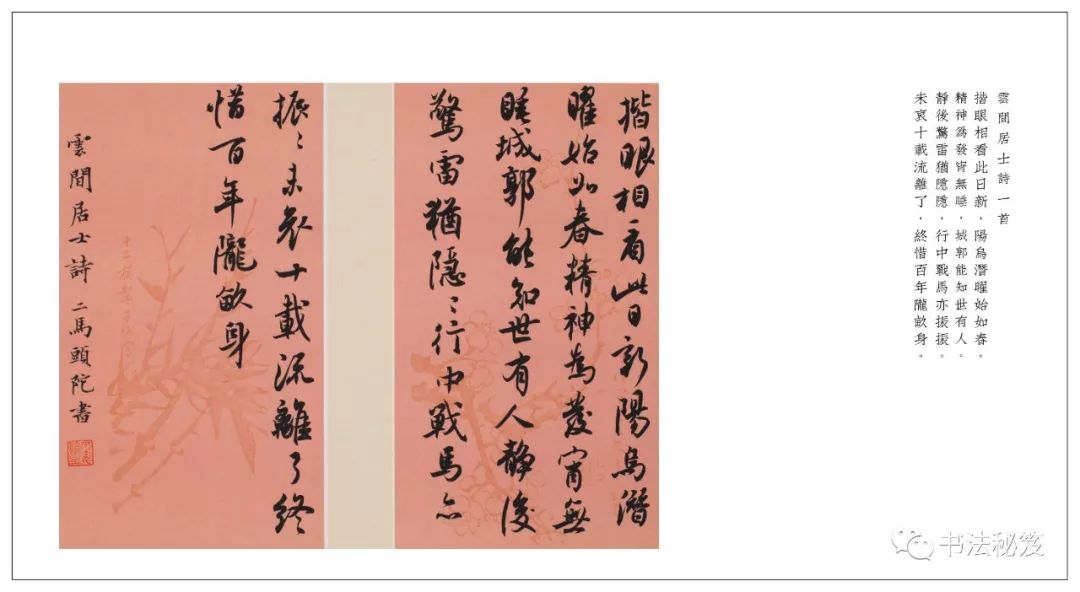 雲間居士詩一首
揩眼相看此日新，陽烏潛曜始如春。
精神爲發甯無睡，城郭能知世有人。
靜後驚雷猶隱隱，行中戰馬亦振振。
未哀十載流離了，終惜百年隴畝身。
揩眼相看此日新陽烏潛
曜始如春精神為發甯無
睡城郭能知世有人静後
驚雷猶隱〻行中戰馬亦
振〻未哀十載流離了終
惜百年隴畝身
雲間居士詩 二馬頭陀書
书法秘笈